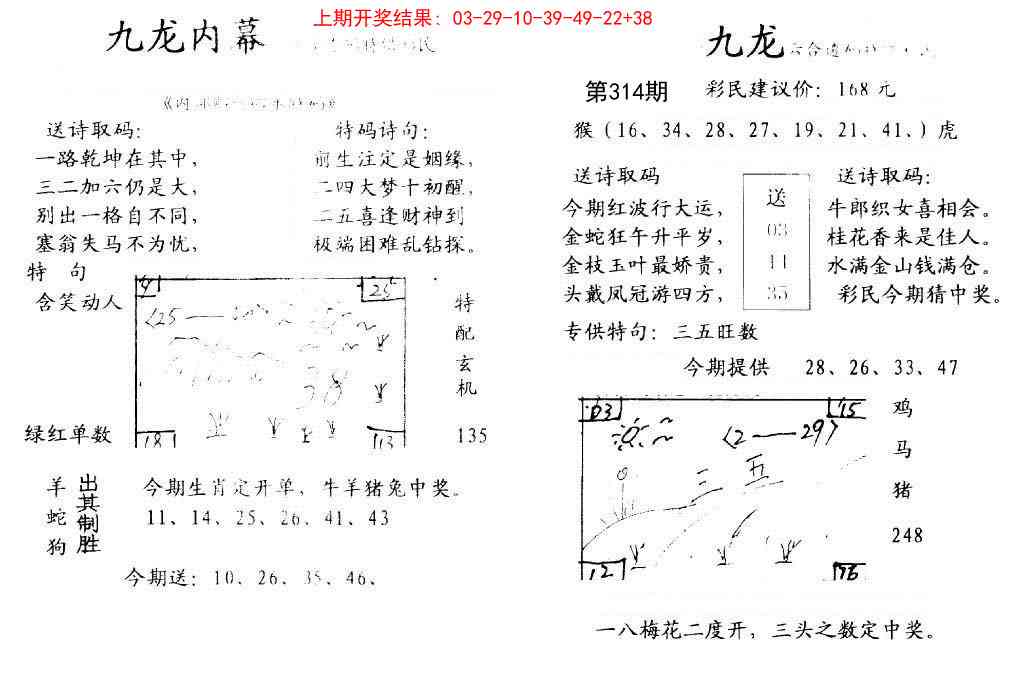 上期开奖结果：03-29-10-39-49-22+38
九龙内幕
送诗取码：
一路乾坤在其中，
三二加六仍是大，
别出一格自不同，
塞翁失马不为忧，
特码诗句：
前生注定是姻缘，
二四大梦十初醒，
二五喜逢财神到
极端困难乱钻探。
特 句
含笑动人
绿红单数
25
18
13
38
特
配
玄
机
135
羊
蛇
狗
出其制胜
今期生肖定开单，牛羊猪兔中奖。
11、14、25、26、41、43
今期送：10、26、35、46、
九龙
第314期
彩民建议价：168元
猴（16、34、28、27、19、21、41、）虎
送诗取码
今期红波行大运，
金蛇狂午升平岁，
金枝玉叶最娇贵，
头戴凤冠游四方，
送
03
11
35
送诗取码：
牛郎织女喜相会。
桂花香来是佳人。
水满金山钱满仓。
彩民今期猜中奖。
专供特句：三五旺数
今期提供 28、26、33、47
03
15
〈2——29〉
三 五
12
鸡
马
猪
248
一八梅花二度开，三头之数定中奖。